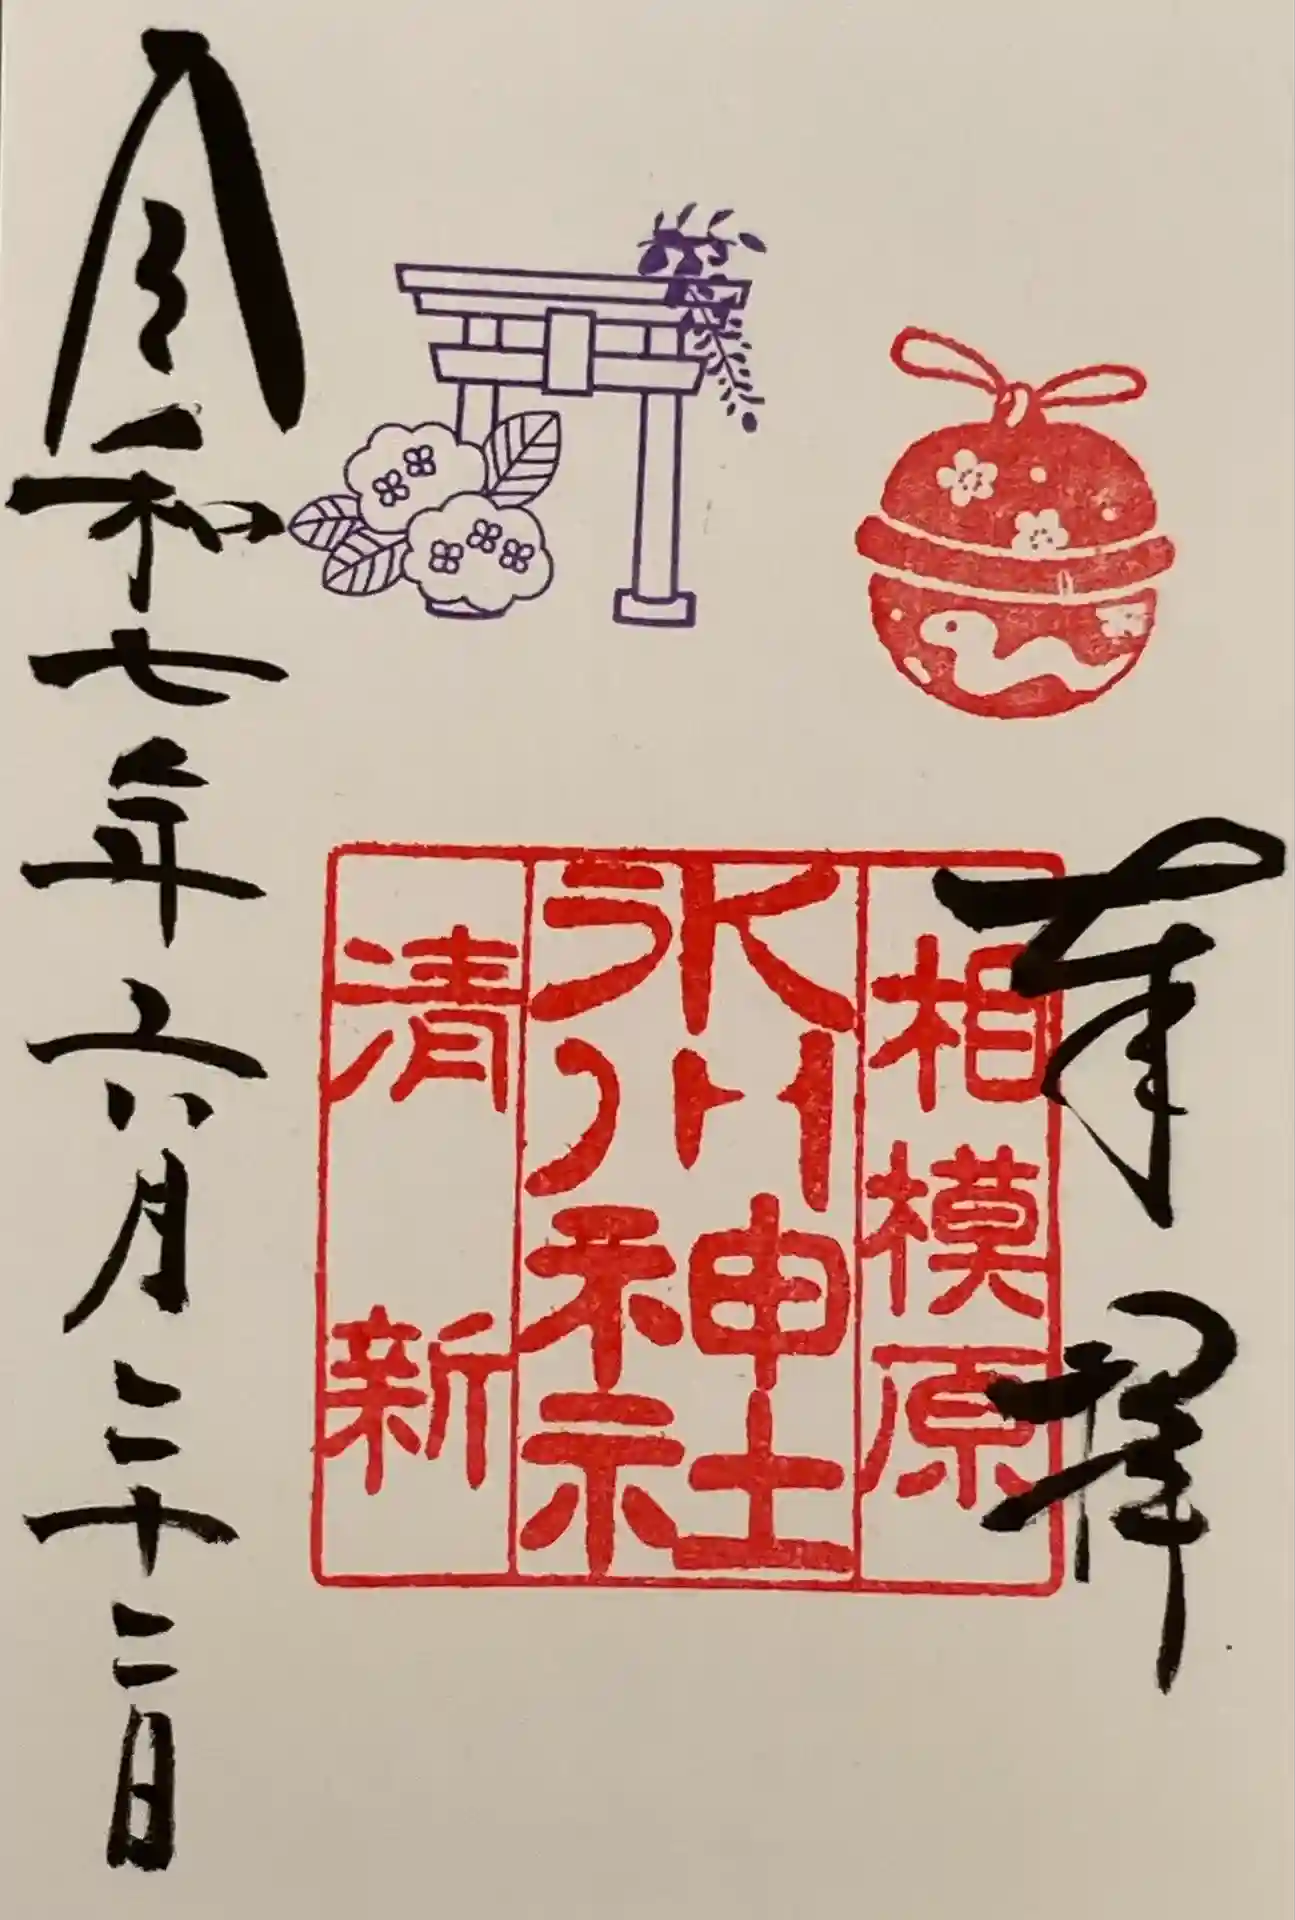 奉拝
相模原
氷川神社
清新
令和七年六月二十二日